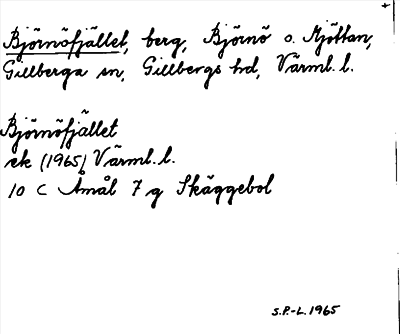 Björnöfjället, berg, Björnö o. Mjöttan,
Gillberga sn, Gillbergs hd, Värml. l.
Björnöfjället
ek (1965) Värml. l.
10 C Åmål 7 g Skäggebol
S.P.-L. 1965